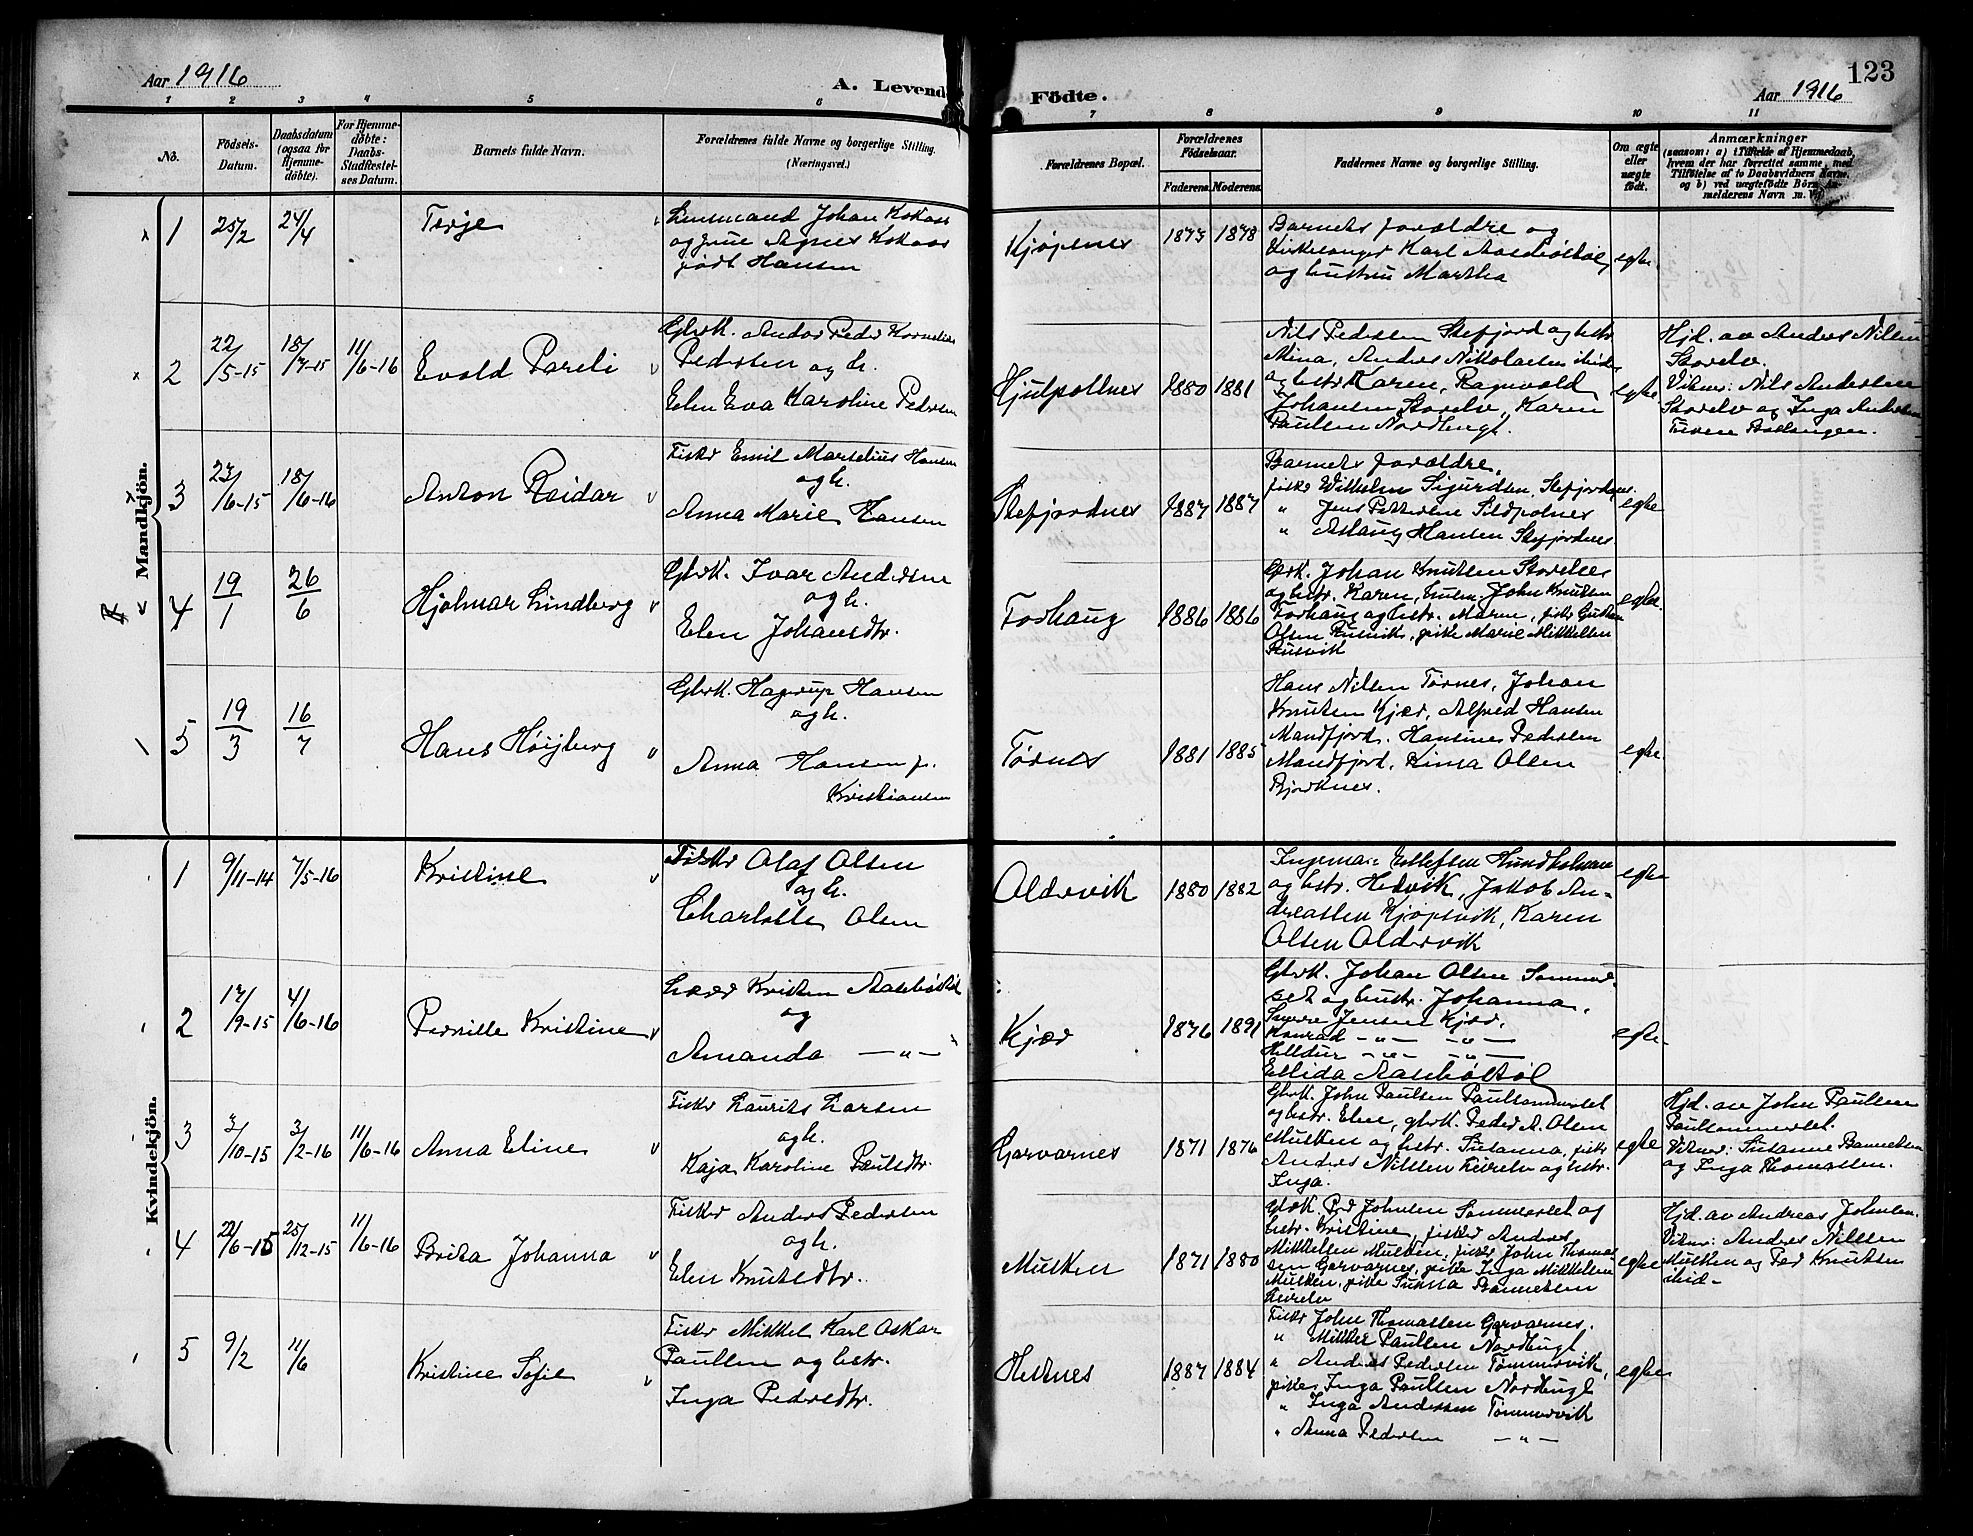 Aar 1916
A. Levende
Födte.
Aar 1916
123
1 2 3 4 5 6 7 8 9 10 11
No.
Födsels-
Datum.
Daabsdatum
(ogsaa for
Hjemme-
döbte).
For Hjemme-
döbte:
Daabs-
Stadfæstel-
ses Datum.
Barnets fulde Navn.
Forældrenes fulde Navne og borgerlige Stilling.
(Næringsvei.)
Forældrenes Bopæl.
Forældrenes
Födselsaar.
Faderens. Moderens.
Faddernes Navne og borgerlige Stilling.
Om ægte
eller
uægte
født.
Anmærkninger
(saasom: a) i Tilfælde af Hjemmedaab,
hvem der har forrettet samme, med
Tilföielse af to Daabsvidners Navne.
og b) ved uægtefödte Börn An-
melderens Navn m. V.)
Mandkjön.
1 25/2 24/4 Terje
Lensmand Johan Kokaas
og frue Agnes Kokaas
født Hansen
Kjøpsnes 1873 1878
Barnets forældre og
Kirkesanger Karl Aasebøstøl
og hustru Martha
egte.
2 22/5-15 18/7-15 11/6-16 Evald Pareli
Gbrk. Andor Peder Kornelius
Pedersen og h.
Elen Eva Karoline Pedersen
Hjulpollnes 1880 1881
Nils Pedersen Stefjord og hstr
Mina, Anders Nikolaisen ibid.
og hstr Karen, Ragnvald
Johansen Storelv, Karen
Paulsen Nordbugt.
egte
Hjd. av Anders Nilsen
Storelv.
Vitner: Nils Andersen
Storelv og Inga Andersen
3 23/6-15 18/6-16 Anton Reidar
Fisker Emil Marselius Hansen
og h.
Anna Marie Hansen
Stefjordnes 1887 1887
Barnets forældre,
fisker Wilhelm Sigurdsen, Stefjordnes.
" Jens Pettersen Sildpolnes
" Aslaug Hansen Stefjordnes
egte
4 19/1 26/6 Hjalmar Lindberg
Gbrk. Ivar Andersen
og h.
Elen Johansdtr.
Forhaug 1886 1886
Gbrk. Johan Knutsen Storelv
og hstr. Karen, John Knutsen
Forhaug og hstr. Maren, fisker
Olsen Rusvik, pike Marie Mikkelsen
Rusvik
egte.
5 19/3 16/7 Hans Høijberg
Gbrk. Hagerup Hansen
og h.
Anna Hansen f.
Kristiansen
Tørnes 1881 1885
Hans Nilsen Tørnes, Johan
Knutsen Kjær, Alfred Hansen
Mandfjord. Hansine Pedersen
Mandfjord, Rina Olsen
Bjørknes.
egte
Kvindekjön.
1 9/11-14 7/5-16 Kristine
Fisker Olaf Olsen
og h.
Charlotte Olsen
Oldervik 1880 1882
Ingemar Hundholmen
og hstr. Hedvik, Jakob An-
dreassen Kjøpsvik, Karen
Olsen Oldervik
egte
2 17/9-15 4/6-16 Pernille Kristine
Lærer Kristen Aasebøstøl
og
Amanda —"—
Kjær 1876 1891
Gbrk. Johan Olsen Sommer-
set og hustr. Johanna,
Sverre Jensen Kjær,
Konrad —"— —"—
Helldur —"— —"—
Ellida Aasebøstøl
egte
3 3/10-15 3/2-16 11/6-16 Anna Eline
Fisker Laurits Larsen
og h.
Kaja Karoline Paulsdtr.
Garvarnes 1871 1876
Gbrk. John Paulsen Paulsommerset
og hstr. Elen, gbrk. Peder A. Olsen
Musken og hstr. Susanna, fisker
Anders Nilsen Leirelv og hstr.
Inga.
egte
Hjd. av John Paulsen
Paulsommerset.
Vitner: Susanne Bannersen
og Inga Thomassen.
4 22/6-15 25/12-15 11/6-16 Brita Johanna
Fisker Anders Pedersen
og h.
Elen Knutsdtr.
Musken 1871 1880
Gbrk. Per Johnsen Sommerset og
hstr. Kristine, fisker Anders
Mikkelsen Musken, fisker John Thomas-
sen Garvarnes, pike Inga Mikkelsen
Musken, pike Bannersen
Leirelv
egte
Hjd. av Andreas Johnsen.
Vitner: Anders Nilsen
Musken og Per Knutsen
ibid.
5 9/2 11/6 Kristine Sofie
Fisker Mikkel Karl Oskar
Paulsen og hstr.
Inga Pedersdtr.
Hestnes 1887 1884
Fisker John Thomassen Garvarnes.
" Mikkel Paulsen Nordbugt
" Anders Pedersen Tømmervik,
piker Inga Paulsen Nordbugt
" Inga Andersen Tømmervik
" Anna Pedersen —"—
egte